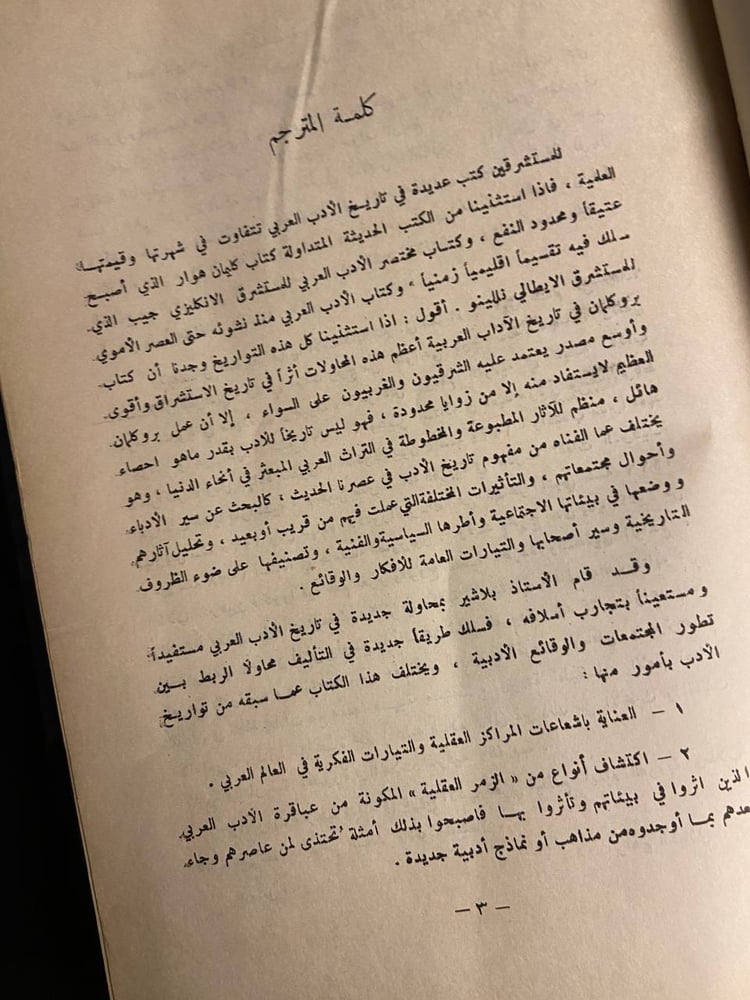 كلمة المترجم
للمستشرقين كتب عديدة في تاريخ الأدب العربي تتفاوت في شهرتها وقيمتها
العلمية ، فاذا استثنينا من الكتب الحديثة المتداولة كتاب كليمان هوار الذي أصبح
عتيقاً ومحدود النفع ، وكتاب مختصر الأدب العربي للمستشرق الانكليزي جيب الذي
سلك فيه تقسيماً اقليمياً زمنياً ، وكتاب الأدب العربي منذ نشوئه حتى العصر الأموي
للمستشرق الايطالي نللينو . أقول : اذا استثنينا كل هذه التواريخ وجدنا أن كتاب
بروكلمان في تاريخ الآداب العربية أعظم هذه المحاولات أثراً في تاريخ الاستشراق وأقوى
وأوسع مصدر يعتمد عليه الشرقيون والغربيون على السواء ، إلا أن عمل بروكلمان
العظيم لايستفاد منه إلا من زوايا محدودة ، فهو ليس تاريخاً للأدب بقدر ماهو احصاء
هائل ، منظم للآثار المطبوعة والمخطوطة في التراث العربي المبعثر في أنحاء الدنيا ، وهو
يختلف عما الفناه من مفهوم تاريخ الأدب في عصرنا الحديث ، كالبحث عن سير الأدباء
وأحوال مجتمعاتهم ، والتأثيرات المختلفة التي عملت فيهم من قريب أو بعيد ، وتحليل آثارهم
ووضعها في بيئاتها الاجتماعية وأطرها السياسية والفنية ، وتصنيفها على ضوء الظروف
التاريخية وسير أصحابها والتيارات العامة للأفكار والوقائع .
وقد قام الأستاذ بلاشير بمحاولة جديدة في تاريخ الأدب العربي مستفيداً
ومستعيناً بتجارب أسلافه ، فسلك طريقاً جديدة في التأليف محاولاً الربط بين
تطور المجتمعات والوقائع الأدبية ، ويختلف هذا الكتاب عما سبقه من تواريخ
الأدب بأمور منها :
١ – العناية باشعاعات المراكز العقلية والتيارات الفكرية في العالم العربي .
٢ – اكتشاف أنواع من « الزمر العقلية » المكونة من عباقرة الأدب العربي
الذين اثروا في بيئاتهم وتأثروا بها فاصبحوا بذلك أمثلة تُحتذى لمن عاصرهم وجاء
بعدهم بما أوجدوه من مذاهب أو نماذج أدبية جديدة .
– ٣ –